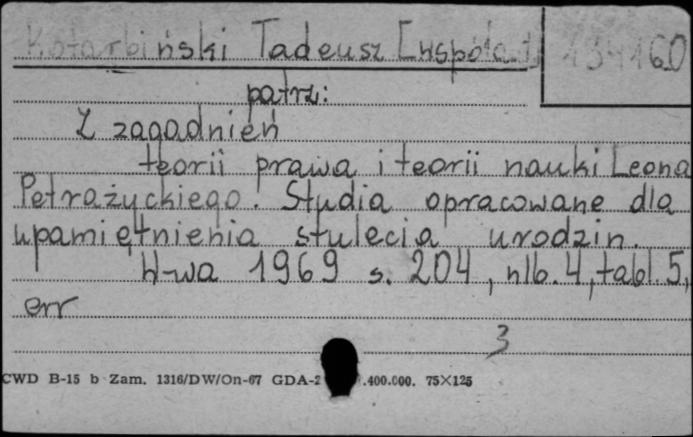 Kotarbiński Tadeusz [współaut.] 134160
patrz:
Z zagadnień
teorii prawa i teorii nauki Leona
Petrażyckiego. Studia opracowane dla
upamiętnienia stulecia urodzin.
W-wa 1969 s. 204, nlb. 4, tabl. 5,
err
3
CWD B-15 b Zam. 1316/DW/On-67 GDA-2 .400.000. 75×125